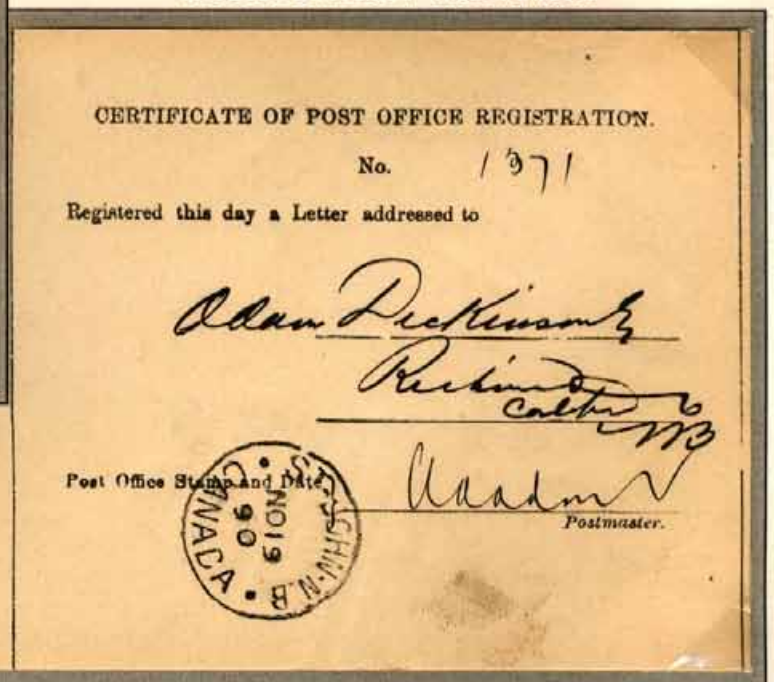 CERTIFICATE OF POST OFFICE REGISTRATION.
No. 1371
Registered this day a Letter addressed to
Adam Dickinson
Richmond
NB
Post Office Stamp and Date
Postmaster.
ST. JOHN. N.B
NO 19
90
CANADA